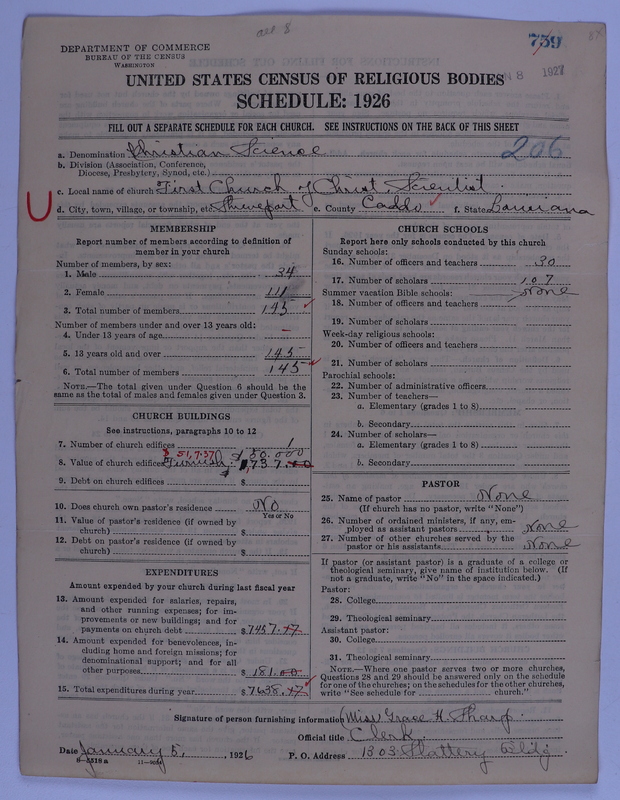 all 8
759
DEPARTMENT OF COMMERCE
BUREAU OF THE CENSUS
WASHINGTON
8 1927
UNITED STATES CENSUS OF RELIGIOUS BODIES
SCHEDULE: 1926
FILL OUT A SEPARATE SCHEDULE FOR EACH CHURCH. SEE INSTRUCTIONS ON THE BACK OF THIS SHEET
206
a. Denomination Christian Science
b. Division (Association, Conference, Diocese, Presbytery, Synod, etc.)
c. Local name of church First Church of Christ Scientist
U
d. City, town, village, or township, etc. Shreveport e. County Caddo f. State Louisiana
MEMBERSHIP
Report number of members according to definition of
member in your church
Number of members, by sex:
1. Male 34
2. Female 111
3. Total number of members 145
Number of members under and over 13 years old:
4. Under 13 years of age –
5. 13 years old and over 145
6. Total number of members 145
NOTE.—The total given under Question 6 should be the
same as the total of males and females given under Question 3.
CHURCH BUILDINGS
See instructions, paragraphs 10 to 12
7. Number of church edifices 1
$51,737 $50.000
8. Value of church edifices Furnish. 1,737.00
9. Debt on church edifices $
10. Does church own pastor's residence No
Yes or No
11. Value of pastor's residence (if owned by
church) $
12. Debt on pastor's residence (if owned by
church) $
EXPENDITURES
Amount expended by your church during last fiscal year
13. Amount expended for salaries, repairs,
and other running expenses; for im-
provements or new buildings; and for
payments on church debt $7457.47
14. Amount expended for benevolences, in-
cluding home and foreign missions; for
denominational support; and for all
other purposes $181.00
15. Total expenditures during year $7638.47
CHURCH SCHOOLS
Report here only schools conducted by this church
Sunday schools:
16. Number of officers and teachers 30
17. Number of scholars 107
Summer vacation Bible schools: None
18. Number of officers and teachers
19. Number of scholars
Week-day religious schools:
20. Number of officers and teachers
21. Number of scholars
Parochial schools:
22. Number of administrative officers
23. Number of teachers—
a. Elementary (grades 1 to 8)
b. Secondary
24. Number of scholars—
a. Elementary (grades 1 to 8)
b. Secondary
PASTOR
25. Name of pastor None
(If church has no pastor, write "None")
26. Number of ordained ministers, if any, em-
ployed as assistant pastors None
27. Number of other churches served by the
pastor or his assistants None
If pastor (or assistant pastor) is a graduate of a college or
theological seminary, give name of institution below. (If
not a graduate, write "No" in the space indicated.)
Pastor:
28. College
29. Theological seminary
Assistant pastor:
30. College
31. Theological seminary
NOTE.—Where one pastor serves two or more churches,
Questions 28 and 29 should be answered only on the schedule
for one of the churches; on the schedules for the other churches,
write "See schedule for church."
Signature of person furnishing information Miss Grace H. Tharp.
Official title Clerk.
Date January 5, 1926 P. O. Address 1303 Slattery Bldg.
8-5518a 11-9051